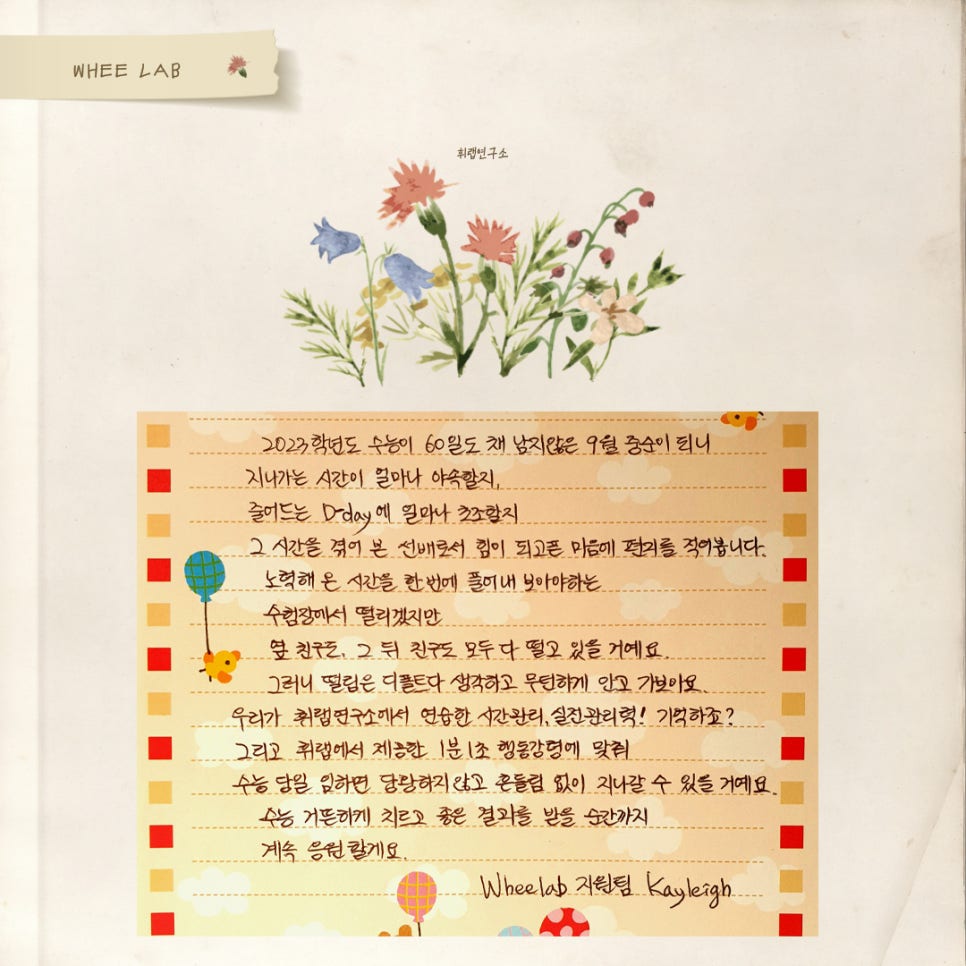 WHEE LAB
휘랩연구소
2023학년도 수능이 60일도 채 남지않은 9월 중순이 되니
지나가는 시간이 얼마나 야속할지,
줄어드는 D-day에 얼마나 초조할지
그 시간을 겪어 본 선배로서 힘이 되고픈 마음에 편지를 적어봅니다.
노력해 온 시간을 한번에 풀어내 보아야하는
수험장에서 떨리겠지만
옆 친구도, 그 뒤 친구도 모두 다 떨고 있을 거예요.
그러니 떨림은 디폴트다 생각하고 무던하게 안고 가보아요.
우리가 휘랩연구소에서 연습한 시간관리, 실전관리력! 기억하죠?
그리고 휘랩에서 제공한 1분 1초 행동강령에 맞춰
수능 당일 임하면 당황하지않고 흔들림 없이 지나갈 수 있을 거예요.
수능 거뜬하게 치르고 좋은 결과를 받을 순간까지
계속 응원할게요.
Wheelab 지원팀 Kayleigh